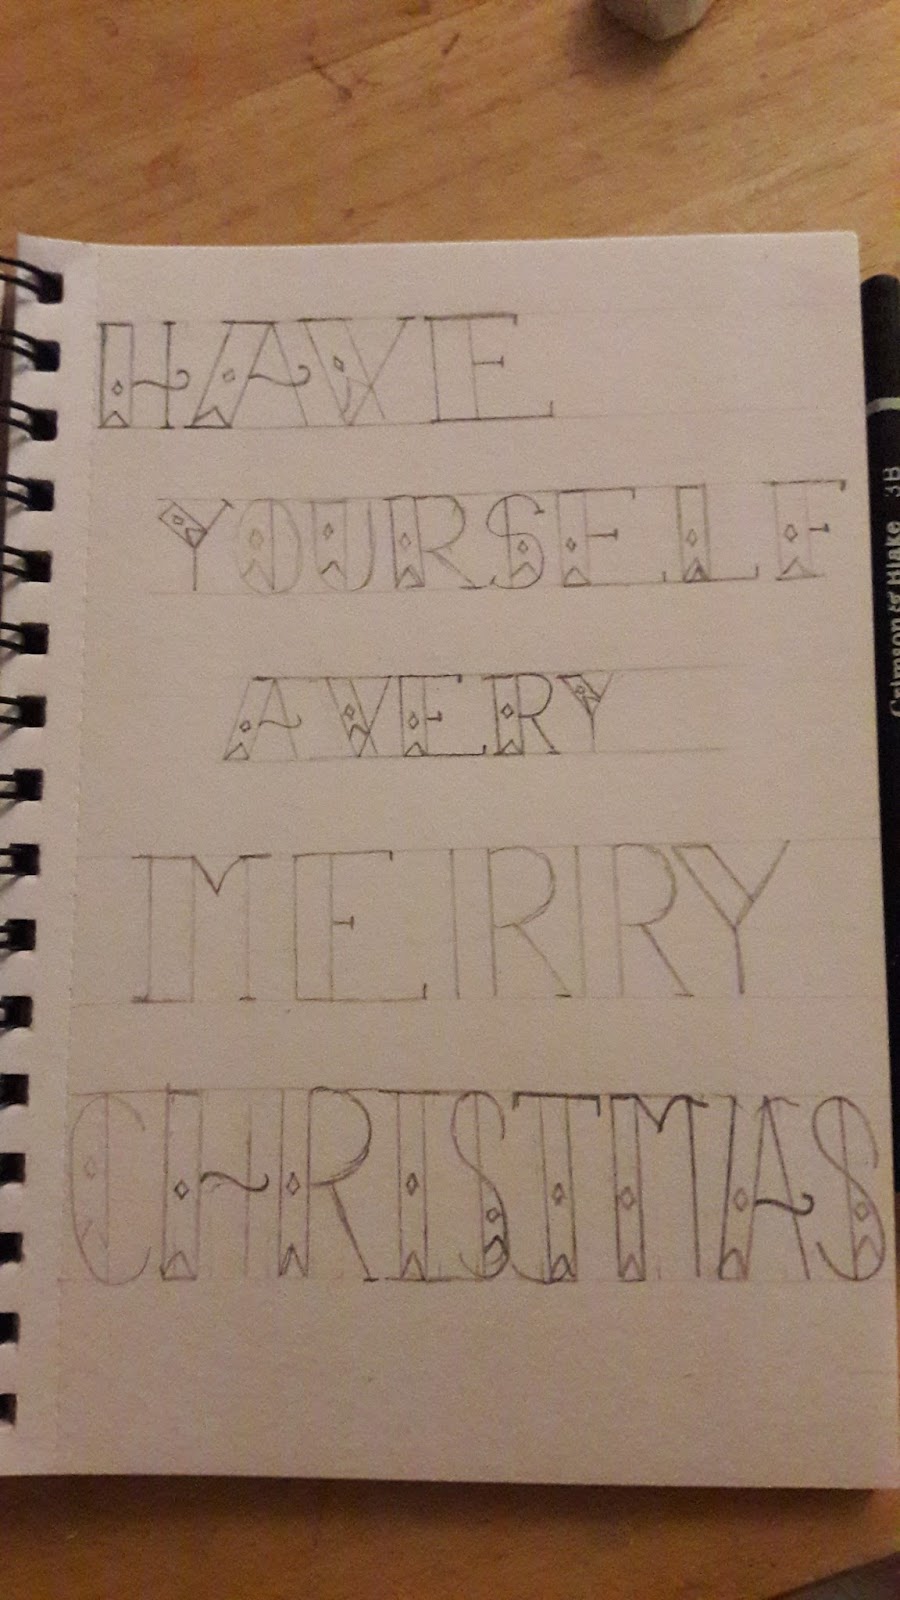 HAVE
YOURSELF
A VERY
MERRY
CHRISTMAS
Crimson & Blake 3B